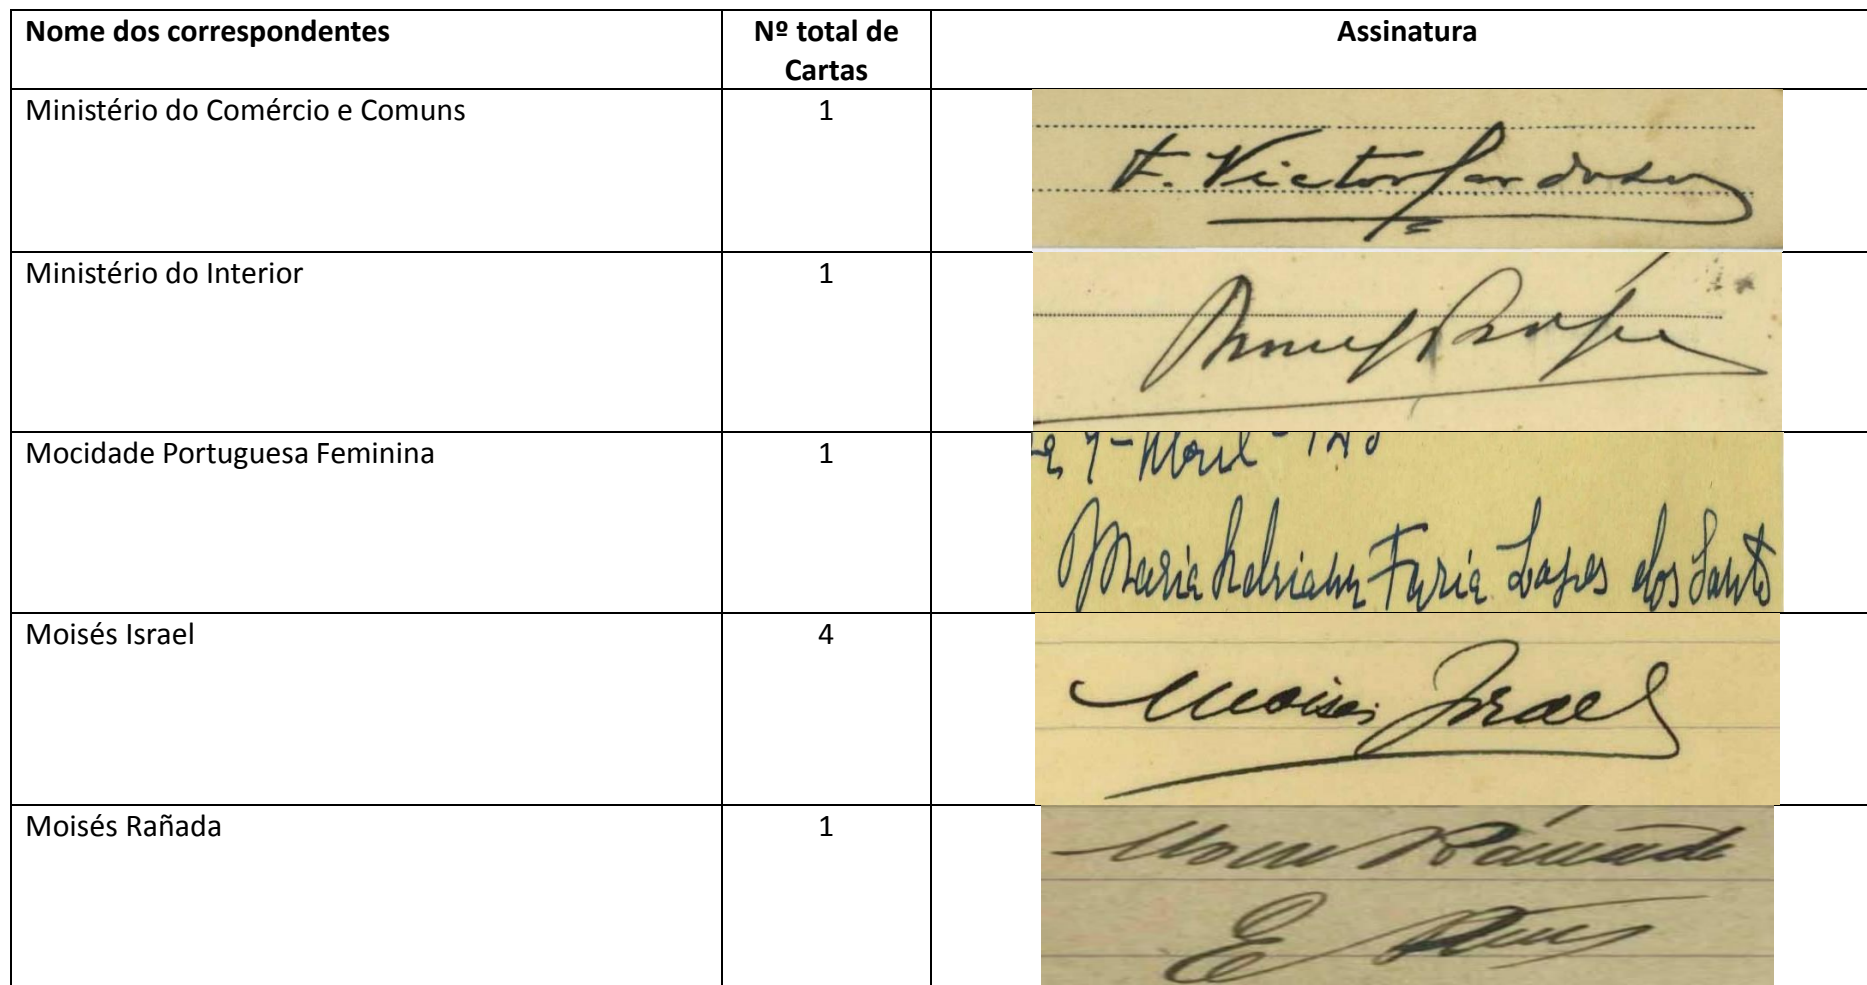 Nome dos correspondentes Nº total de Cartas Assinatura
Ministério do Comércio e Comuns 1
F. Victor Cardoso
Ministério do Interior 1
Mocidade Portuguesa Feminina 1
Abril
Maria Adriana Faria Lopes dos Santos
Moisés Israel 4
Moises Israel
Moisés Rañada 1